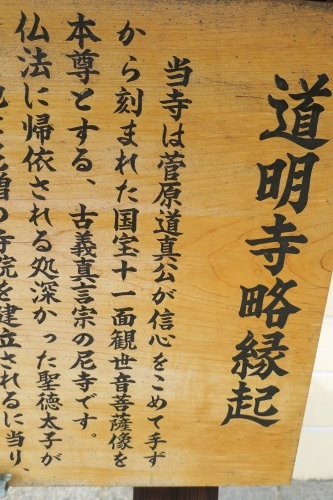 道明寺略縁起
当寺は菅原道真公が信心をこめて手ず
から刻まれた国宝十一面観世音菩薩像を
本尊とする、古義真言宗の尼寺です。
仏法に帰依される処深かった聖徳太子が
の寺院を建立されるに当り、